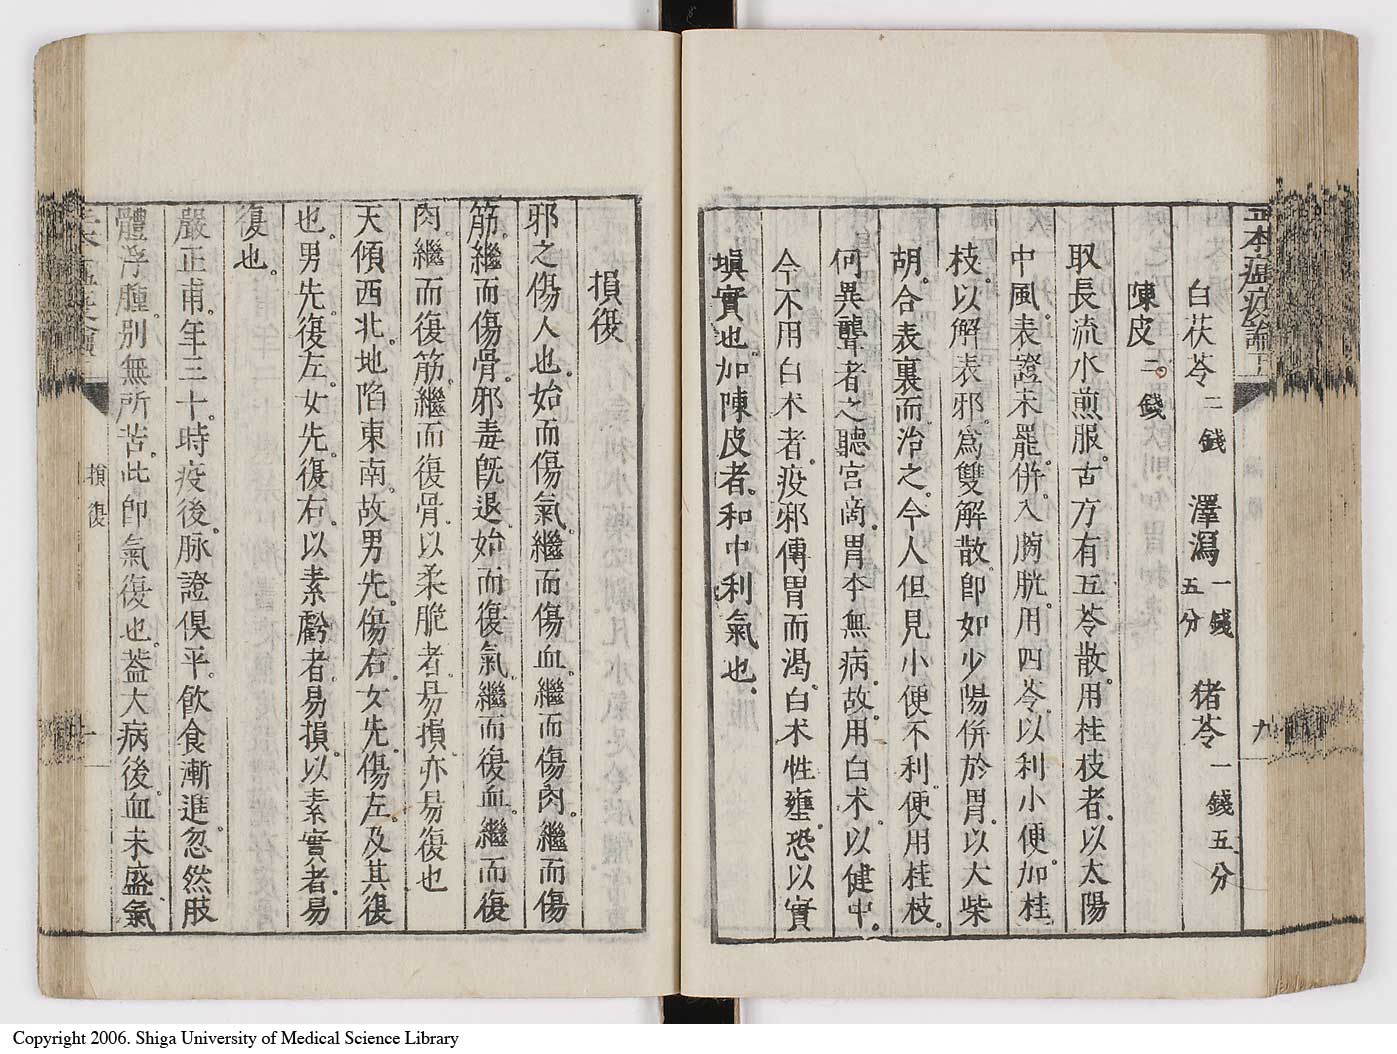 白茯苓二錢 澤瀉一錢五分 猪苓一錢五分
陳皮二錢
取長流水煎服。古方有五苓散。用桂枝者。以太陽
中風。表證未罷。併入膀胱。用四苓。以利小便。加桂
枝。以解表邪。爲雙解散。即如少陽併於胃。以大柴
胡。合表裏而治之。今人但見小便不利。便用桂枝。
何異聾者之聽宮商。胃本無病。故用白术。以健中。
今不用白术者。疫邪傳胃而渴。白术性壅。恐以實
塡實也。加陳皮者。和中利氣也。
損復
邪之傷人也。始而傷氣。繼而傷血。繼而傷肉。繼而傷
筋。繼而傷骨。邪毒旣退。始而復氣。繼而復血。繼而復
肉。繼而復筋。繼而復骨。以柔脆者。易損。亦易復也
天傾西北。地陷東南。故男先傷右。女先傷左。及其復
也。男先復左。女先復右。以素虧者。易損。以素實者。易
復也。
嚴正甫。年三十。時疫後。脉證俱平。飲食漸進。忽然肢
體浮腫。別無所苦。此即氣復也。葢大病後。血未盛。氣
損復
九
Copyright 2006. Shiga University of Medical Science Library